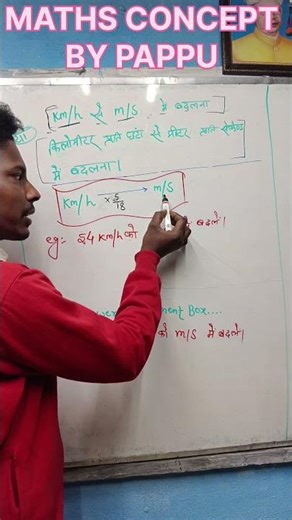 MATHS CONCEPT
BY PAPPU
Km/h से m/s में बदलना
किलोमीटर प्रति घंटा से मीटर प्रति सेकेण्ड
में बदलना।
Km/h × 5/18 → m/s
eg:- 54 Km/h को बदले।
ment Box....
को m/s में बदले।